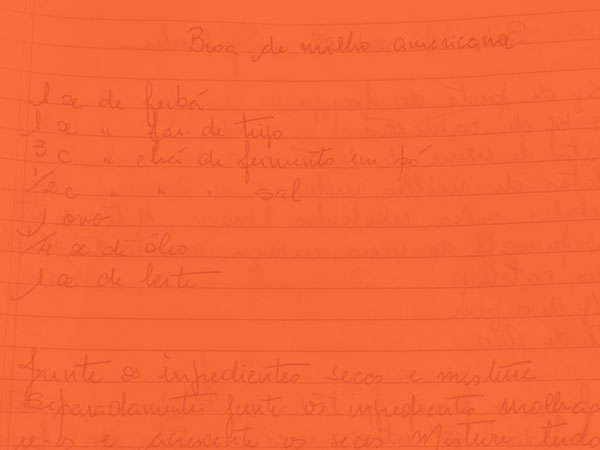 Broa de milho americana
1 x de fubá
1 x " far. de trigo
3 c. " chá de fermento em pó
1/2 c " " " sal
1 ovo
1/4 x de óleo
1 x de leite
Junte os ingredientes secos e misture
Separadamente junte os ingredientes molhad
e acrescente os secos. Misture tudo